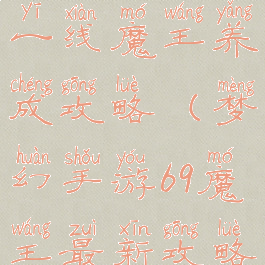 yī xiàn mó wáng yǎng
一线魔王养
chéng gōng lüè mèng
成攻略（梦
huàn shǒu yóu mó
幻手游69魔
wáng zuì xīn gōng lüè
王最新攻略